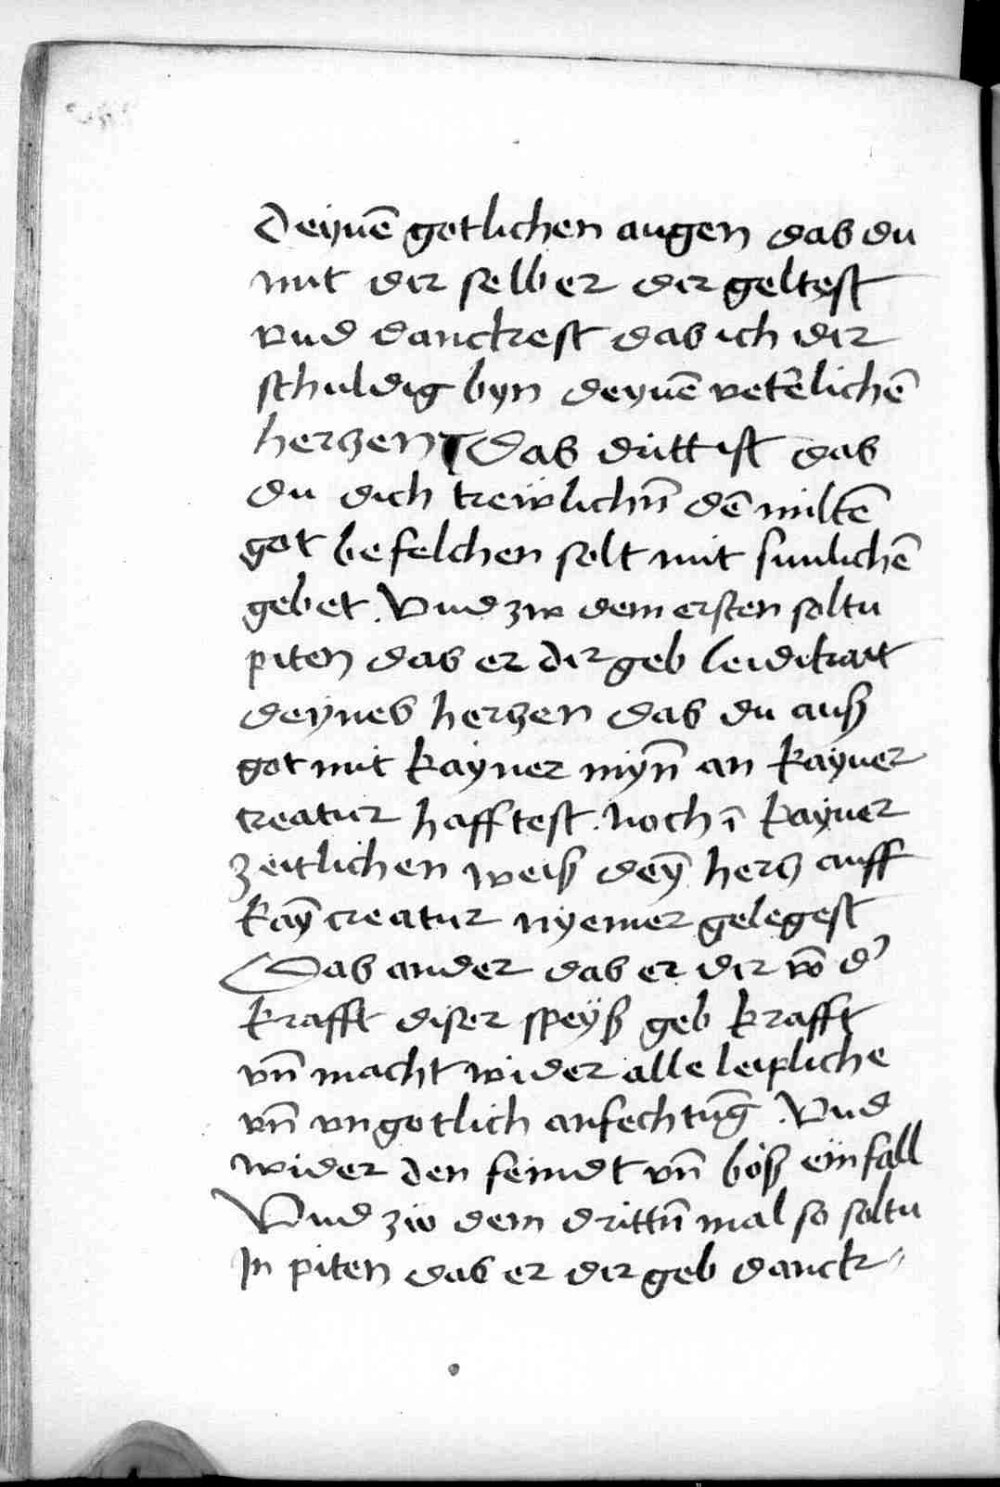 Deynē gotlichen augen das du
mit dir selber dir geltest
vnd danckest das ich dir
schuldig byn deynē veterlichē
herczen Das dritt ist das
du dich trewlichn̄ dē miltē
got befelchen solt mit sinnlichē
gebet. Vnd zw dem ersten soltu
piten das er dir geb ledikait
deynes herczen das du auß
got mit kayner myn̄ an kayner
creatur hafftest. Noch ī kayner
zeitlichen weiß dey̅ hercz auff
kay̅ creatur nyemer gelegest
Das ander das er dir vō d'
krafft diser speyß geb krafft
vn̄ macht wider alle leipliche
vn̄ vngotlich anfechtūg. Vnd
wider den feindt vn̄ böß einfall
Vnd zw dem drittn̄ mal so soltu
In piten das er dir geb danck